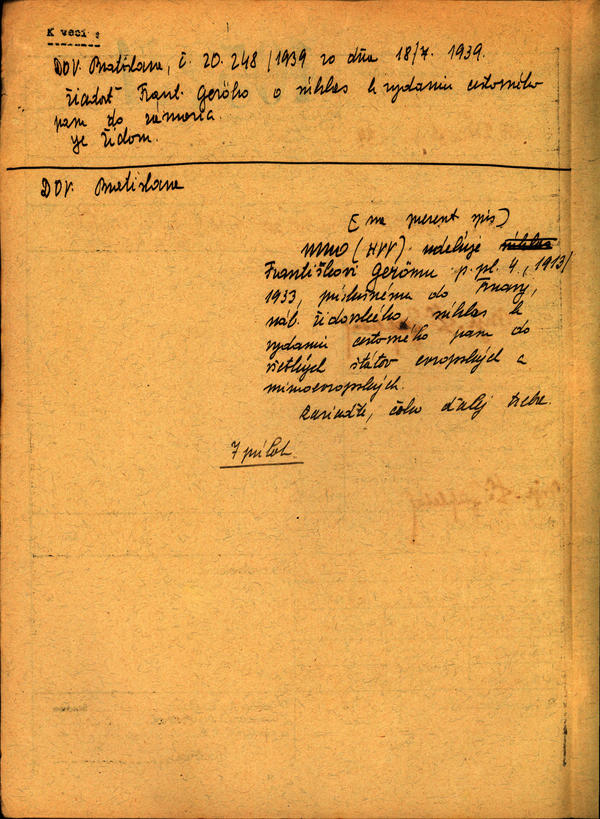 K veci :
DOV. Bratislava, č. 20.248/1939 zo dňa 18/7. 1939.
Žiadosť Frant. Gerőho o súhlas k vydaniu cestovného
pasu do zámoria.
Je židom.
DOV. Bratislava
(na prezent spis)
MNO (HVV) udeľuje súhlas
Františkovi Gerőmu p. pl. 4., 1913/
1933, príslušnému do Trnavy,
náb. židovského, súhlas k
vydaniu cestovného pasu do
všetkých štátov evropských a
mimoevropských.
Zariaďte, čoho ďalej treba.
7 príloh.